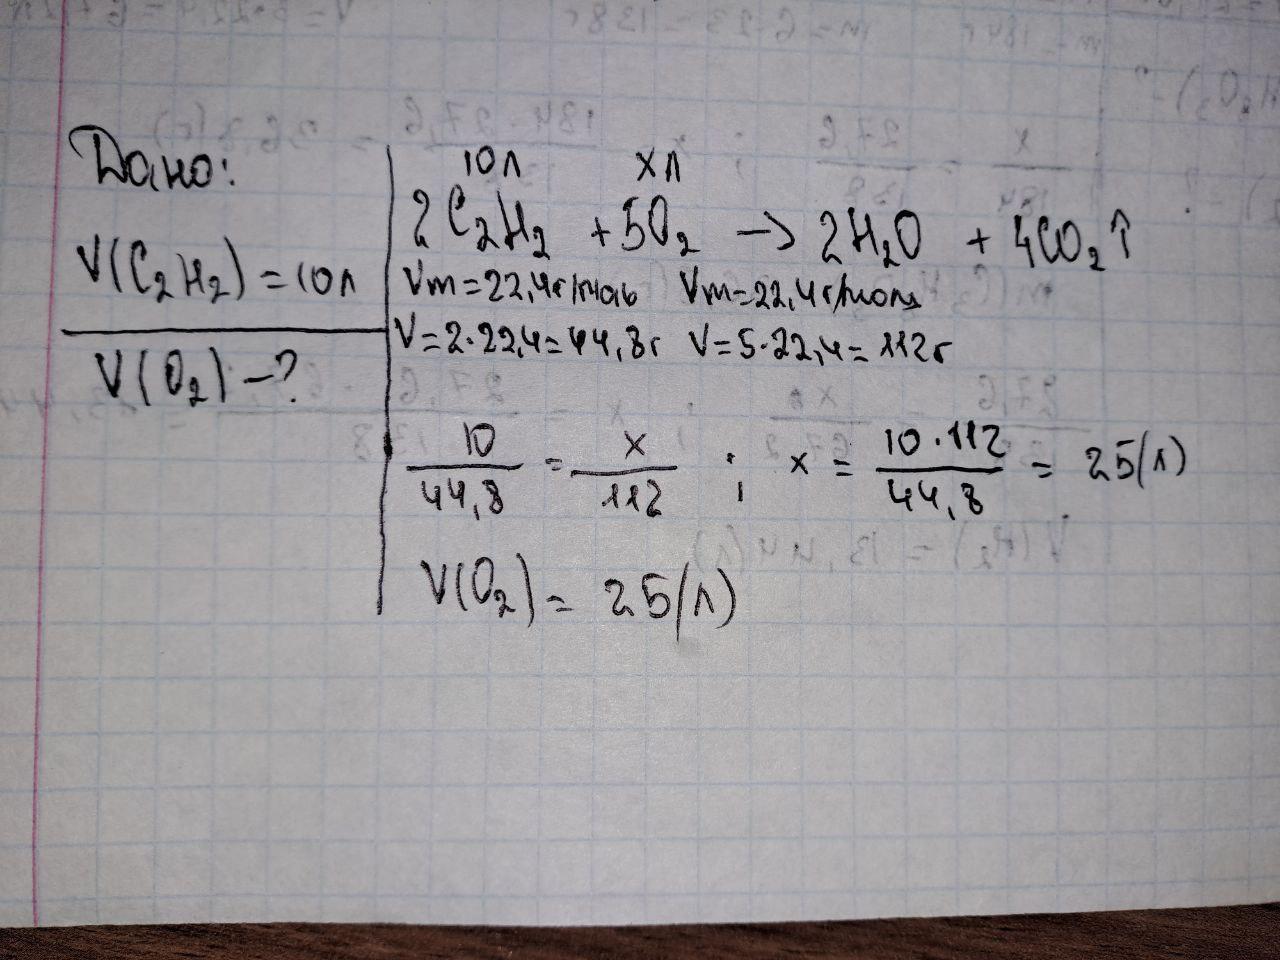 Дано:
V(C₂H₂) = 10л
V(O₂) - ?
10л хл
2C₂H₂ + 5O₂ → 2H₂O + 4CO₂↑
Vm = 22,4г/моль Vm = 22,4г/моль
V = 2·22,4 = 44,8г V = 5·22,4 = 112г
10/44,8 = x/112 ; x = 10·112/44,8 = 25(л)
V(O₂) = 25(л)